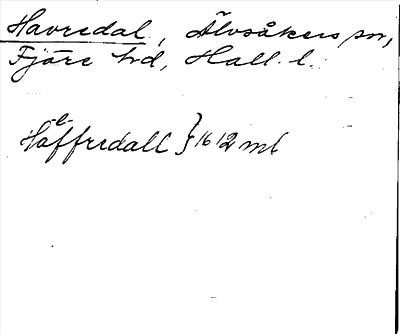 Havredal, Älvsåkers sn,
Fjäre hd, Hall. l.
-e-
Haffredall } 1612 ml